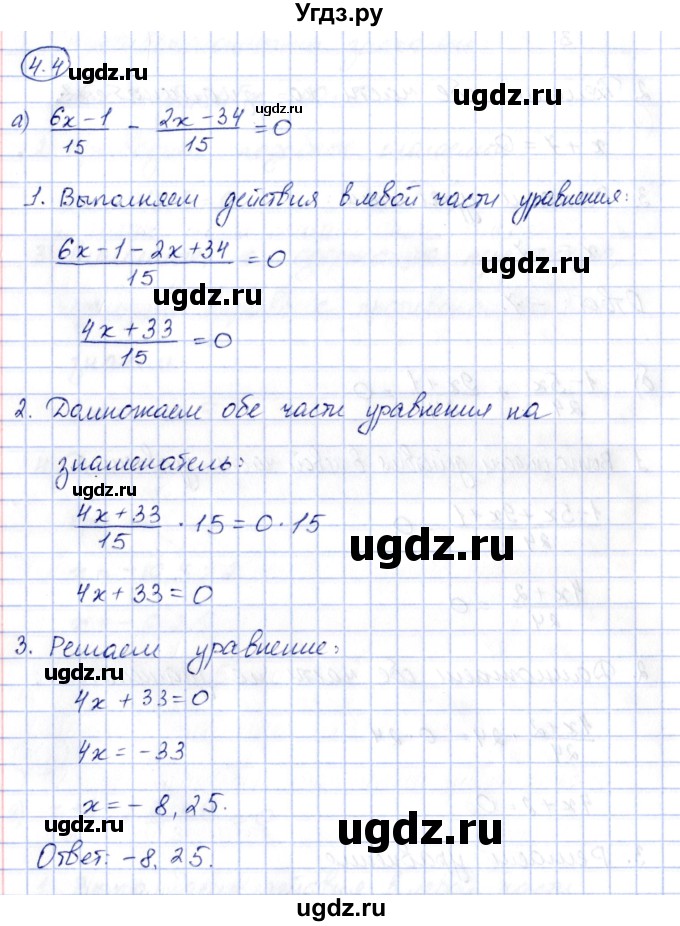 Угдз.ру
4.4
ugdz.ru
ugdz.ru
а) (6x-1)/15 - (2x-34)/15 = 0
ugdz.ru
1. Выполняем действия в левой части уравнения:
(6x-1-2x+34)/15 = 0
ugdz.ru
ugdz.ru
(4x+33)/15 = 0
2. Домножаем обе части уравнения на
знаменатель:
ugdz.ru
(4x+33)/15 · 15 = 0 · 15
ugdz.ru
4x+33=0
3. Решаем уравнение:
ugdz.ru
4x+33=0
4x=-33
x=-8,25.
ugdz.ru
ugdz.ru
Ответ: -8,25.
ugdz.ru